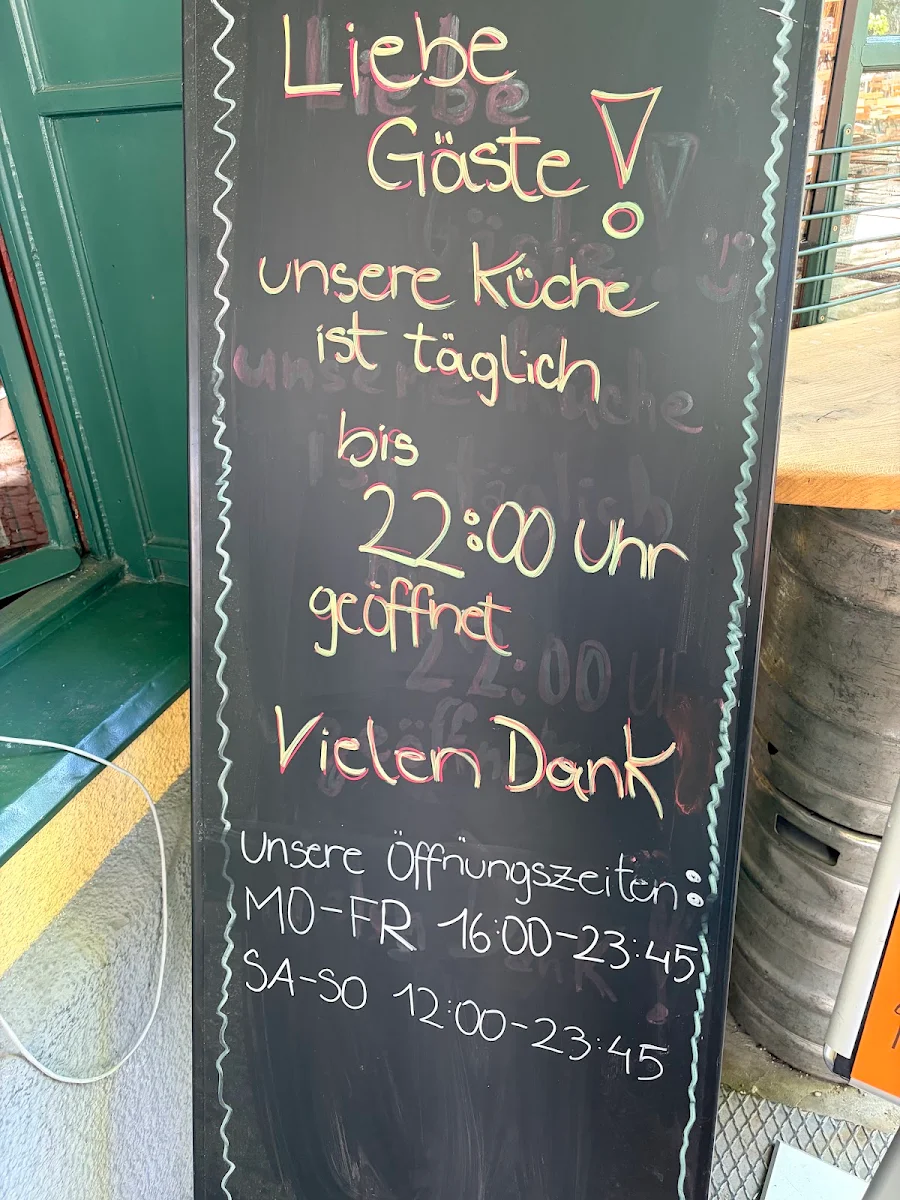 Liebe
Gäste!
unsere Küche
ist täglich
bis
22:00 Uhr
geöffnet
Vielen Dank
unsere Öffnungszeiten:
MO-FR 16:00-23:45
SA-SO 12:00-23:45